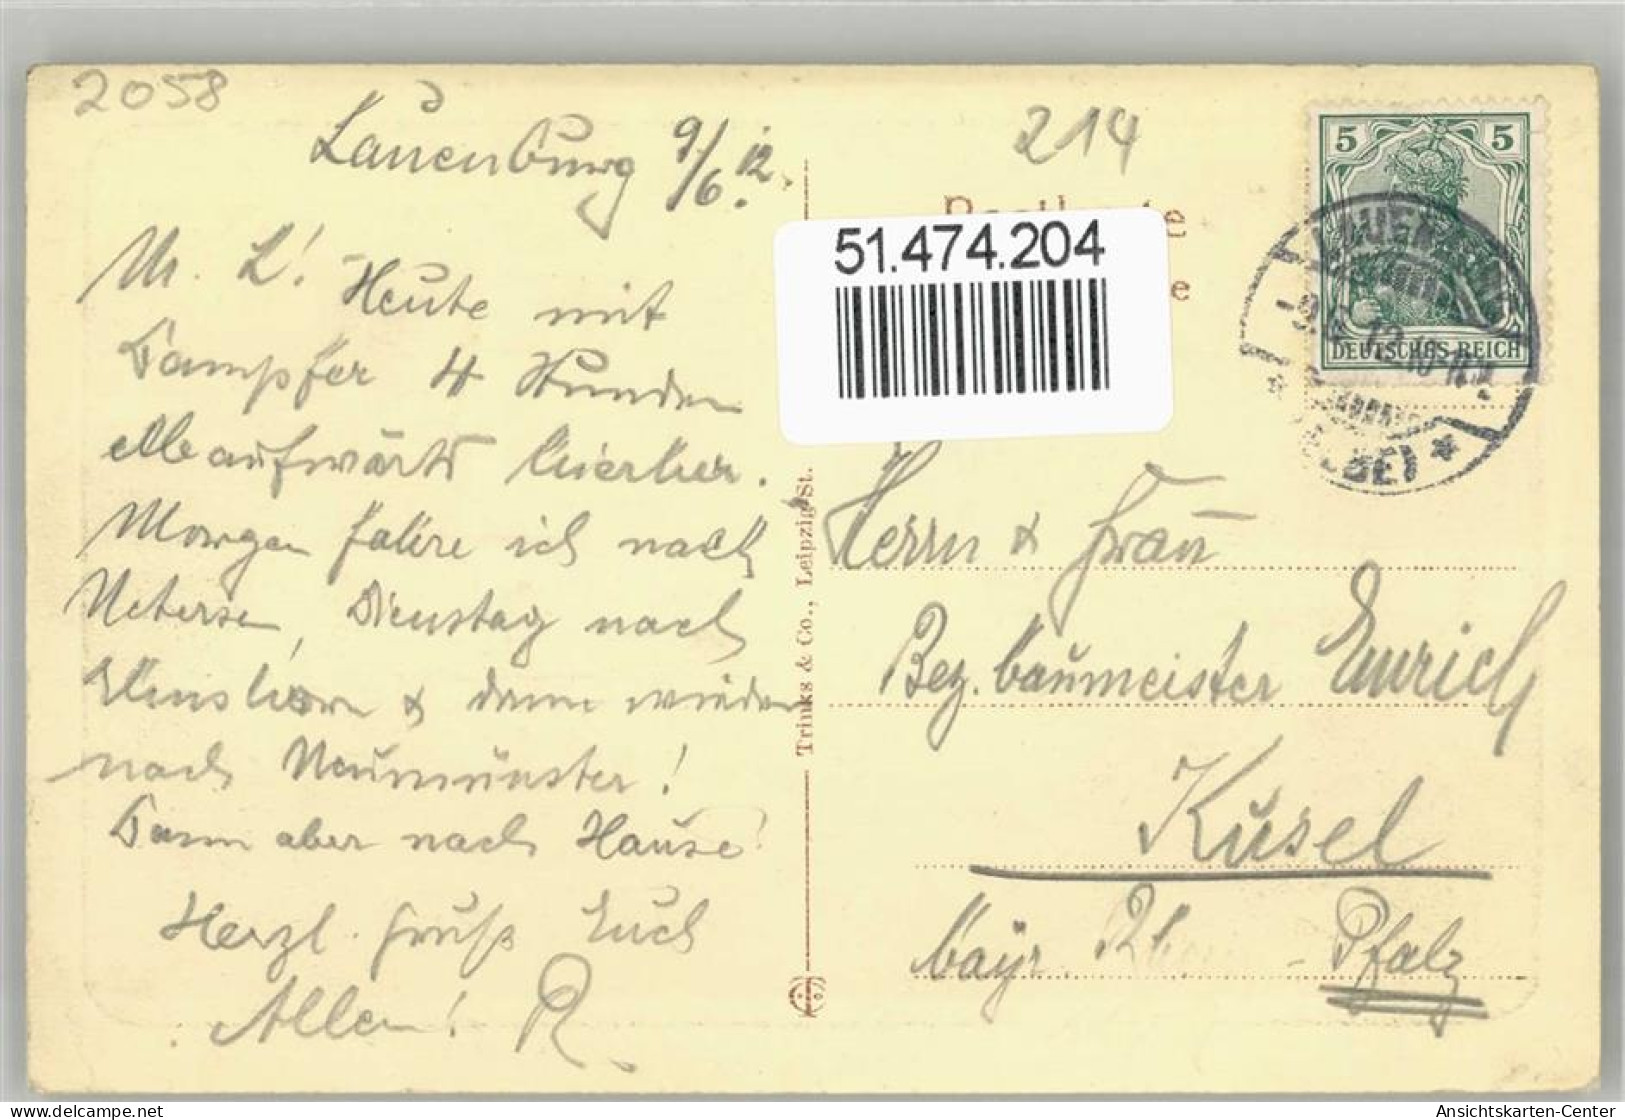 2058
Lauenburg 9/6. 12.
M. L! Heute mit
Dampfer 4 Stunden
elbeaufwärts hierher.
Morgen fahre ich nach
Uetersen, Dienstag nach
Elmshorn & dann wieder
nach Neumünster!
Dann aber nach Hause!
Herzl. Gruß Euch
Allen! R.
Trinks & Co., Leipzig St.
214
51.474.204
5 5
DEUTSCHES REICH
(ELBE) *
Herrn & Frau
Bez. baumeister Emrich
Kusel
bayr. Rhein - Pfalz
delcampe.net
Ansichtskarten-Center